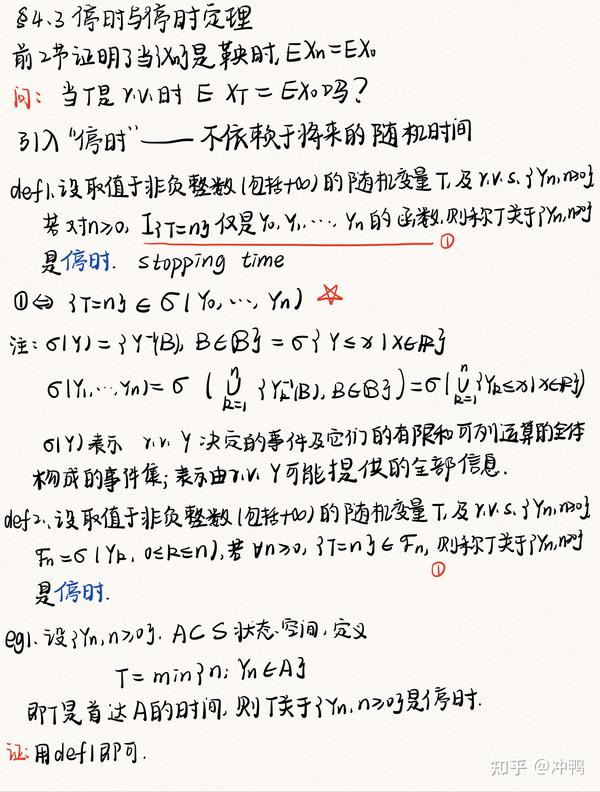 §4.3 停时与停时定理
前2节证明了当{Xn}是鞅时, EXn=EX0
问: 当T是r.v.时 E XT = EX0吗?
引入“停时”—— 不依赖于将来的随机时间
def1. 设取值于非负整数(包括+∞)的随机变量T, 及r.v.s.{Yn,n≥0}
若对n≥0, I{T=n}仅是Y0,Y1,…,Yn的函数,则称T关于{Yn,n≥0} ①
是停时. stopping time
①⇔ {T=n}∈σ(Y0,…,Yn) ☆
注: σ(Y)={Y⁻¹(B), B∈𝔹}=σ{Y≤x|x∈R}
σ(Y1,…,Yn)=σ(⋃_{k=1}^{n}{Yk⁻¹(B),B∈𝔹})=σ(⋃_{k=1}^{n}{Yk≤x|x∈R})
σ(Y)表示 r.v. Y决定的事件及它们的有限和可列运算的全体
构成的事件集; 表示由r.v. Y可能提供的全部信息.
def2. 设取值于非负整数(包括+∞)的随机变量T, 及r.v.s.{Yn,n≥0}
Fn=σ(Yk, 0≤k≤n), 若∀n≥0, {T=n}∈Fn, 则称T关于{Yn,n≥0} ①
是停时.
eg1. 设{Yn,n≥0}. A⊂S状态空间, 定义
T=min{n; Yn∈A}
即T是首达A的时间, 则T关于{Yn,n≥0}是停时.
证: 用def1即可.
知乎 @冲鸭